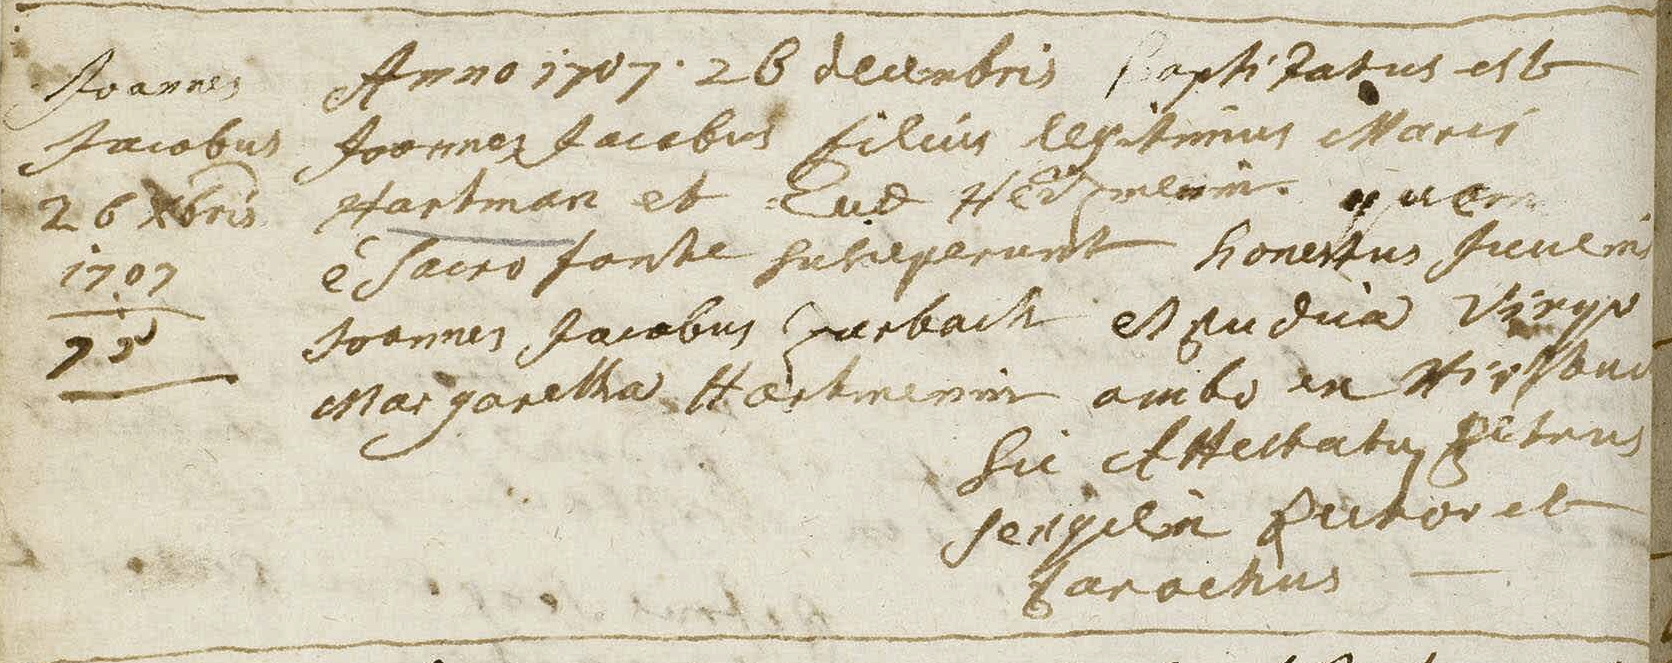 Joannes
Jacobus
26 Xbris
1707
Anno 1707. 26 decembris Baptizatus est
Joannes Jacobus filius legitimus Marci
Hartman et Eva quem
è Sacro fonte susceperunt honestus Juvenis
Joannes Jacobus et pudica Virgo
Margaretha Hartmenin ambo ex
Sic Attestatur Petrus
Sengelin Prior et
Parochus